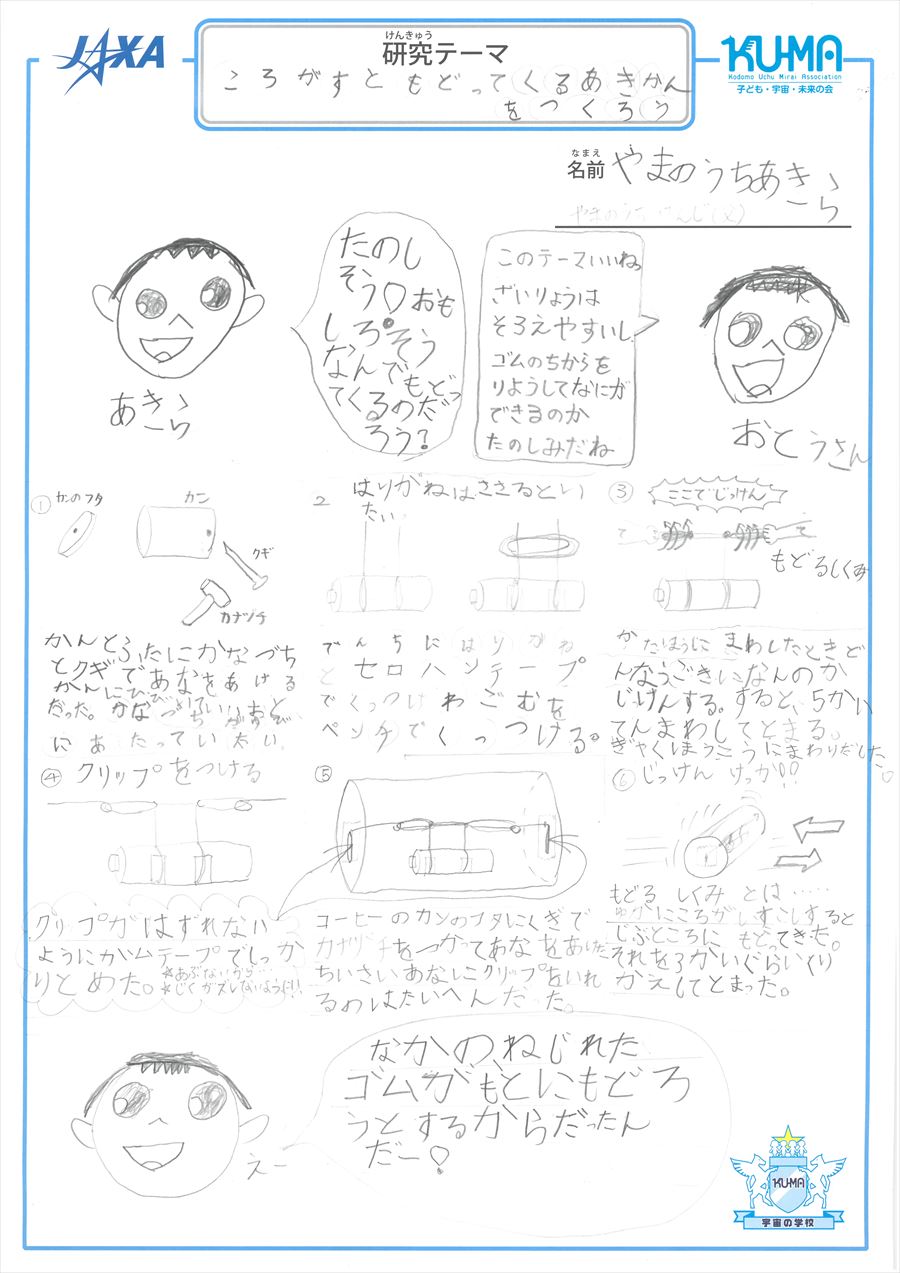 JAXA
けんきゅう
研究テーマ
ころがすともどってくるあきかん
をつくろう
KU-MA
Kodomo Uchu Mirai Association
子ども・宇宙・未来の会
なまえ
名前 やまのうちあきら
たのし
そう♡おも
しろそう
なんでもどっ
てくるのだ
ろう?
このテーマいいね。
ざいりょうは
そろえやすいし、
ゴムのちからを
りようしてなにが
できるのか
たのしみだね
あきら
おとうさん
① カンのフタ カン
クギ
カナヅチ
かんとふたにかなづち
とクギであなをあける
かんにひびいて
だった。かなづち
にあたってい
2 はりがねはささるとい
たい
でんちにはりがね
とセロハンテープ
でくっつけわごむを
ペンチでくっつける。
③ ここでじっけん
て て
もどるしくみ
かたほうにまわしたときど
んなうごきになんのか
じけんする。すると、5かい
てんまわしてとまる。
ぎゃくほうこうにまわりだした。
④ クリップをつける
クリップがはずれない
ようにガムテープでしっか
りとめた。
★あぶないから…
★じくがズレないように!!
⑤
コーヒーのカンのフタにくぎで
カナヅチをつかってあなをあけた
ちいさいあなにクリップをいれ
るのはたいへんだった。
⑥ じっけんけっか!!
もどるしくみとは……
ゆかにころがしすこしすると
じぶところにもどってきた。
それを3かいぐらいくり
かえしてとまった。
えー
なかの、ねじれた
ゴムがもとにもどろ
うとするからだったん
だー!
KU-MA
宇宙の学校